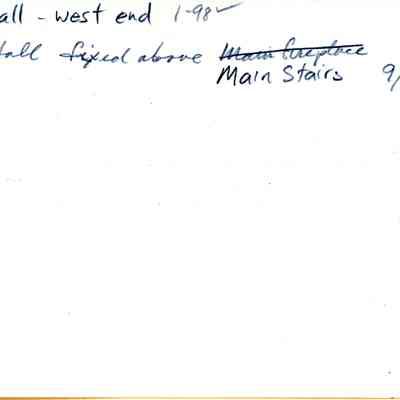 all - west end 1-98 ✓
all fixed above ~~Main fireplace~~
Main Stairs 9/